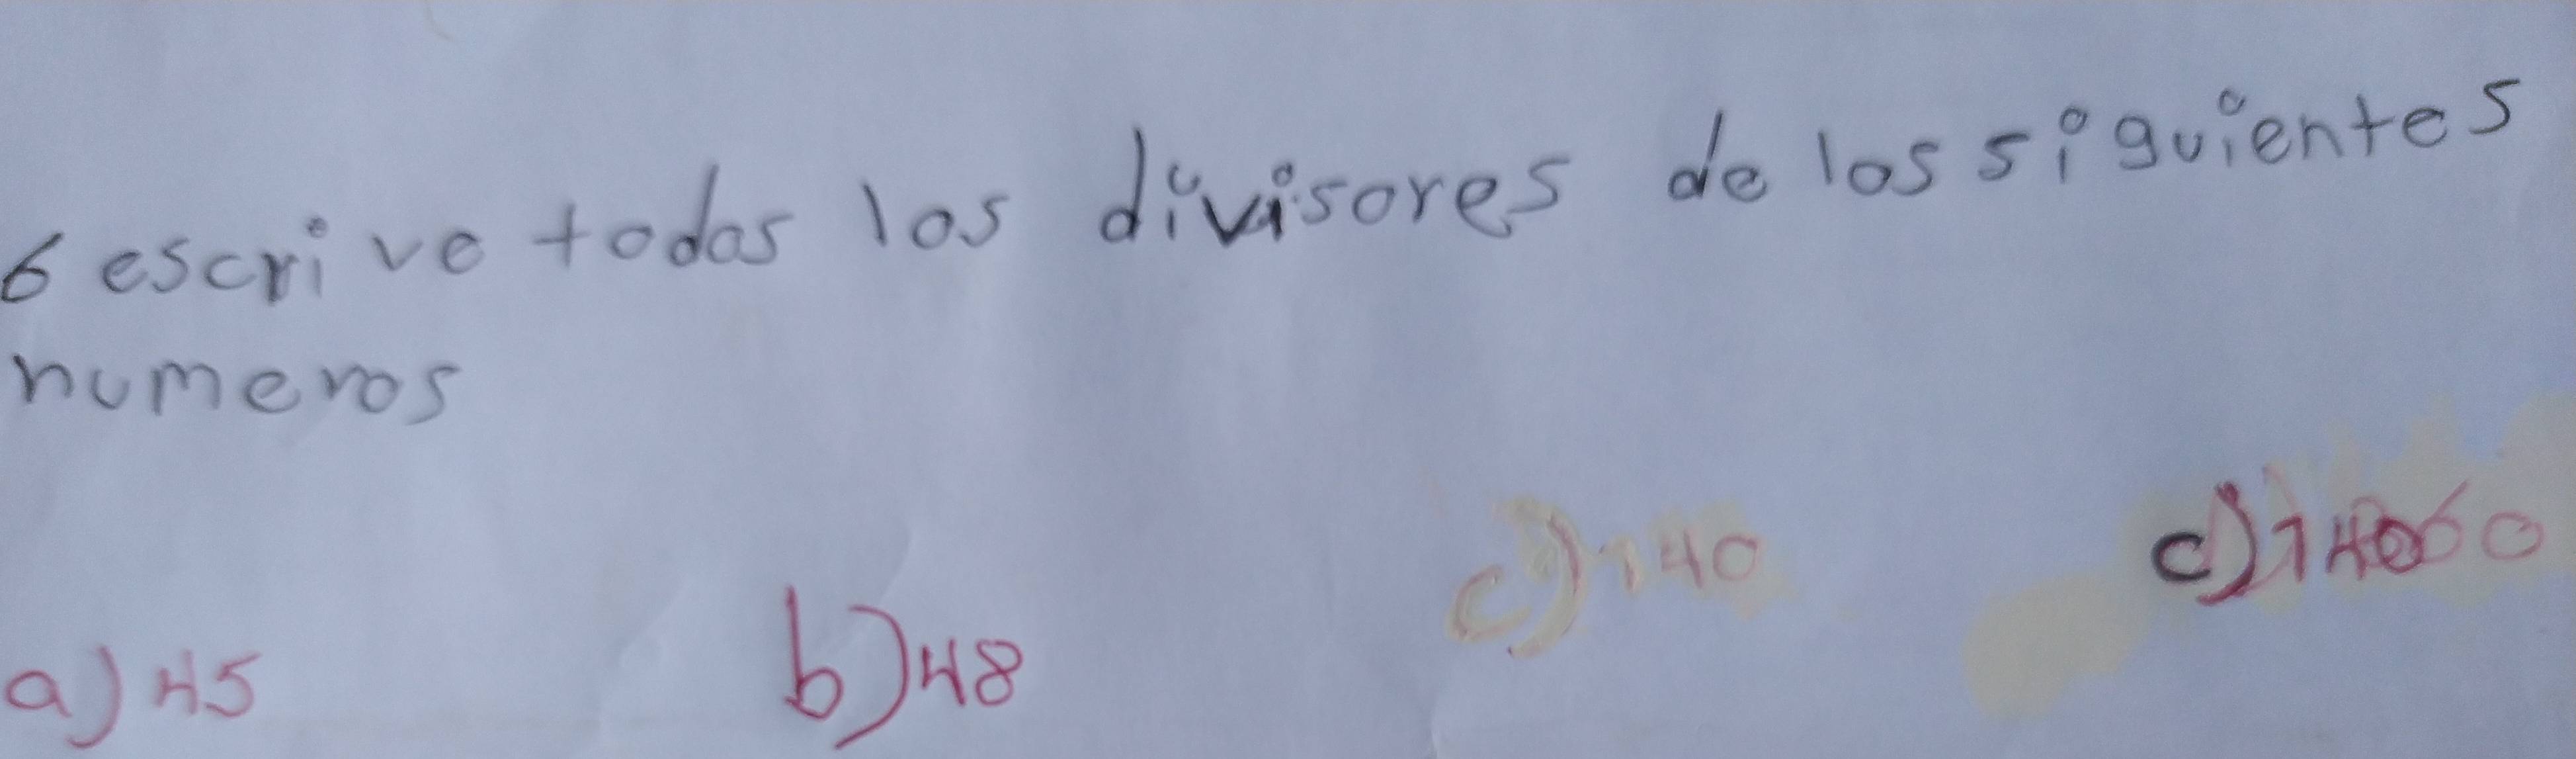 6 escrive todos los divisores de los siguientes
numeros
a) 45 b) 48 c) 140 c)